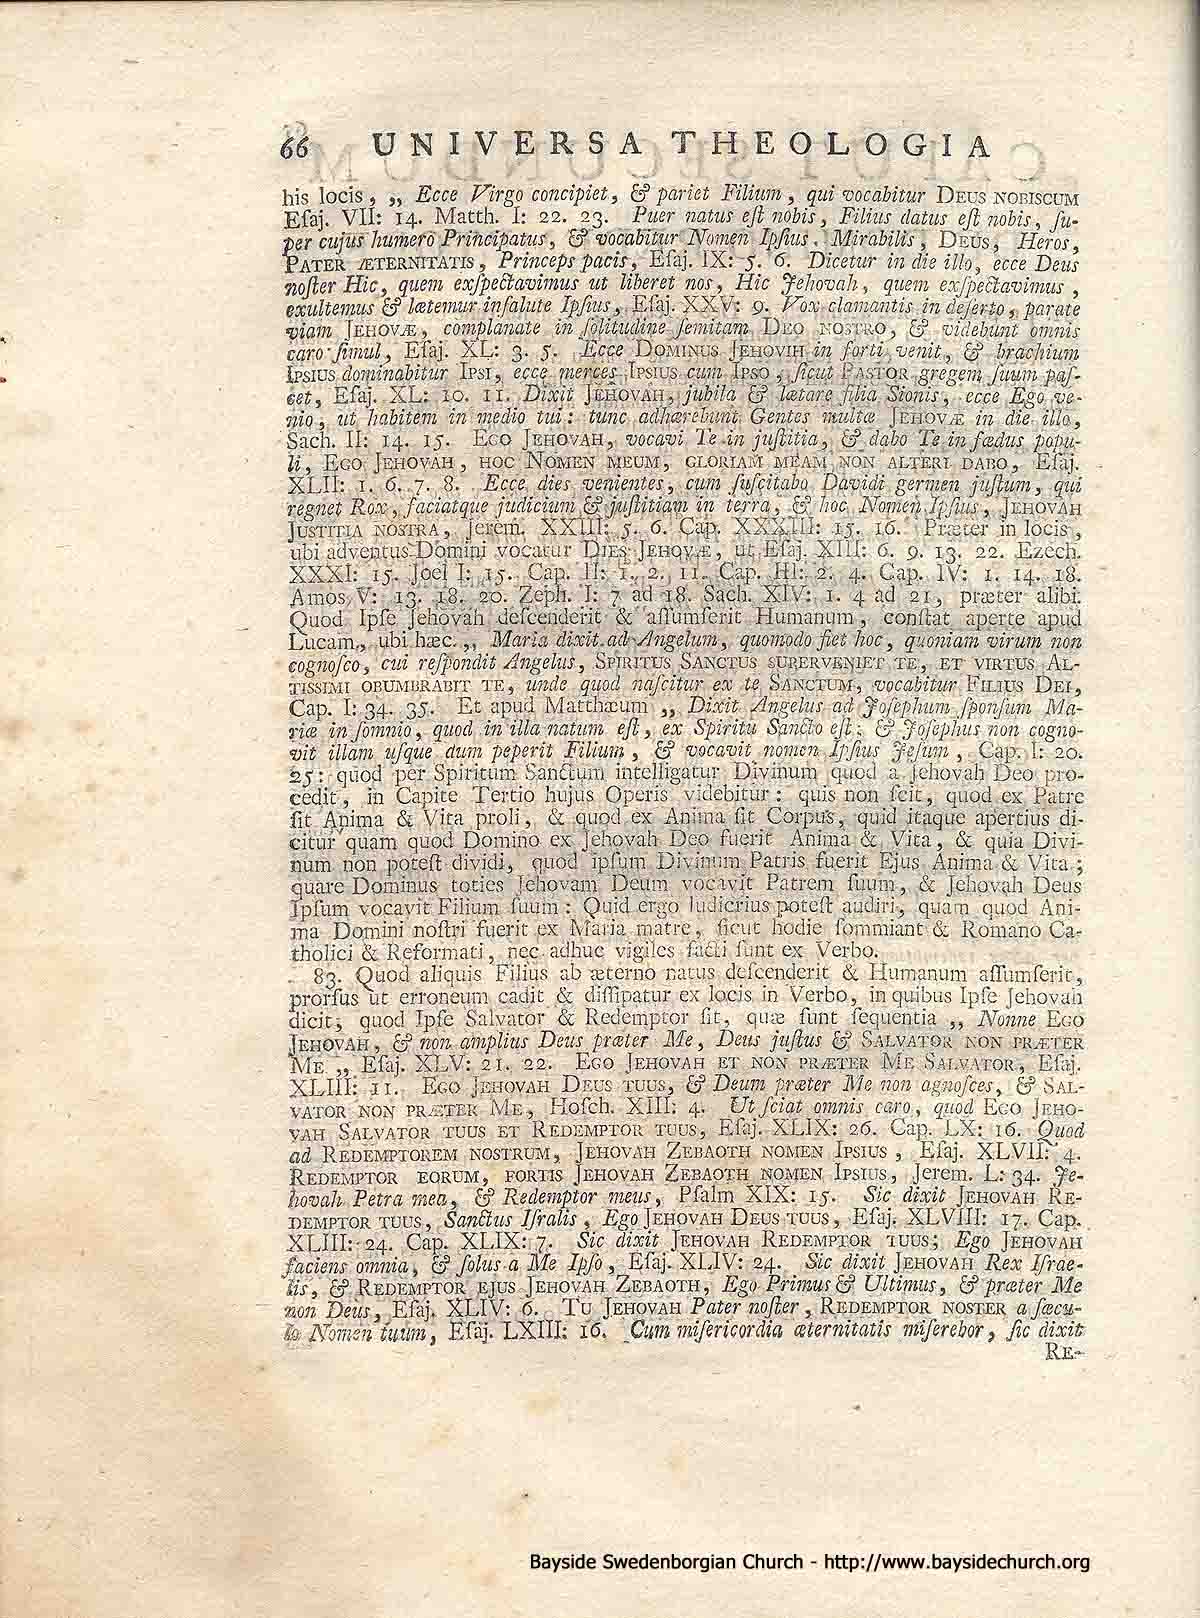 66 UNIVERSA THEOLOGIA
his locis, ,, Ecce Virgo concipiet, & pariet Filium, qui vocabitur DEUS NOBISCUM
Eſaj. VII: 14. Matth. I: 22. 23. Puer natus eſt nobis, Filius datus eſt nobis, ſu-
per cujus humero Principatus, & vocabitur Nomen Ipſius, Mirabilis, DEUS, Heros,
PATER ÆTERNITATIS, Princeps pacis, Eſaj. IX: 5. 6. Dicetur in die illo, ecce Deus
noſter Hic, quem exſpectavimus ut liberet nos, Hic Jehovah, quem exſpectavimus,
exultemus & lætemur in ſalute Ipſius, Eſaj. XXV: 9. Vox clamantis in deſerto, parate
viam JEHOVÆ, complanate in ſolitudine ſemitam DEO NOSTRO, & videbunt omnis
caro ſimul, Eſaj. XL: 3. 5. Ecce DOMINUS JEHOVIH in forti venit, & brachium
IPSIUS dominabitur IPSI, ecce merces IPSIUS cum IPSO, ſicut PASTOR gregem ſuum paſ-
cet, Eſaj. XL: 10. 11. Dixit JEHOVAH, jubila & lætare filia Sionis, ecce Ego ve-
nio, ut habitem in medio tui: tunc adhærebunt Gentes multæ JEHOVÆ in die illo,
Sach. II: 14. 15. EGO JEHOVAH, vocavi Te in juſtitia, & dabo Te in fœdus popu-
li, EGO JEHOVAH, HOC NOMEN MEUM, GLORIAM MEAM NON ALTERI DABO, Eſaj.
XLII: 1. 6. 7. 8. Ecce dies venientes, cum ſuſcitabo Davidi germen juſtum, qui
regnet Rox, faciatque judicium & juſtitiam in terra, & hoc Nomen Ipſius, JEHOVAH
JUSTITIA NOSTRA, Jerem. XXIII: 5. 6. Cap. XXXIII: 15. 16. Præter in locis,
ubi adventus Domini vocatur DIES JEHOVÆ, ut Eſaj. XIII: 6. 9. 13. 22. Ezech.
XXXI: 15. Joel I: 15. Cap. II: 1. 2. 11. Cap. III: 2. 4. Cap. IV: 1. 14. 18.
Amos V: 13. 18. 20. Zeph. I: 7 ad 18. Sach. XIV: 1. 4 ad 21, præter alibi.
Quod Ipſe Jehovah deſcenderit & aſſumſerit Humanum, conſtat aperte apud
Lucam, ubi hæc. ,, Maria dixit ad Angelum, quomodo fiet hoc, quoniam virum non
cognoſco, cui reſpondit Angelus, SPIRITUS SANCTUS SUPERVENIET TE, ET VIRTUS AL-
TISSIMI OBUMBRABIT TE, unde quod naſcitur ex te SANCTUM, vocabitur FILIUS DEI,
Cap. I: 34. 35. Et apud Matthæum ,, Dixit Angelus ad Joſephum ſponſum Ma-
riæ in ſomnio, quod in illa natum eſt, ex Spiritu Sancto eſt: & Joſephus non cogno-
vit illam uſque dum peperit Filium, & vocavit nomen Ipſius Jeſum, Cap. I: 20.
25: quod per Spiritum Sanctum intelligatur Divinum quod a Jehovah Deo pro-
cedit, in Capite Tertio hujus Operis videbitur: quis non ſcit, quod ex Patre
ſit Anima & Vita proli, & quod ex Anima ſit Corpus, quid itaque apertius di-
citur quam quod Domino ex Jehovah Deo fuerit Anima & Vita, & quia Divi-
num non poteſt dividi, quod ipſum Divinum Patris fuerit Ejus Anima & Vita;
quare Dominus toties Jehovam Deum vocavit Patrem ſuum, & Jehovah Deus
Ipſum vocavit Filium ſuum: Quid ergo ludicrius poteſt audiri, quam quod Ani-
ma Domini noſtri fuerit ex Maria matre, ſicut hodie ſommiant & Romano Ca-
tholici & Reformati, nec adhuc vigiles facti ſunt ex Verbo.
83. Quod aliquis Filius ab æterno natus deſcenderit & Humanum aſſumſerit,
prorſus ut erroneum cadit & diſſipatur ex locis in Verbo, in quibus Ipſe Jehovah
dicit, quod Ipſe Salvator & Redemptor ſit, quæ ſunt ſequentia ,, Nonne EGO
JEHOVAH, & non amplius Deus præter Me, Deus juſtus & SALVATOR NON PRÆTER
ME ,, Eſaj. XLV: 21. 22. EGO JEHOVAH ET NON PRÆTER ME SALVATOR, Eſaj.
XLIII: 11. EGO JEHOVAH DEUS TUUS, & Deum præter Me non agnoſces, & SAL-
VATOR NON PRÆTER ME, Hoſch. XIII: 4. Ut ſciat omnis caro, quod EGO JEHO-
VAH SALVATOR TUUS ET REDEMPTOR TUUS, Eſaj. XLIX: 26. Cap. LX: 16. Quod
ad REDEMPTOREM NOSTRUM, JEHOVAH ZEBAOTH NOMEN IPSIUS, Eſaj. XLVII: 4.
REDEMPTOR EORUM, FORTIS JEHOVAH ZEBAOTH NOMEN IPSIUS, Jerem. L: 34. Je-
hovah Petra mea, & Redemptor meus, Pſalm XIX: 15. Sic dixit JEHOVAH RE-
DEMPTOR TUUS, Sanctus Iſralis, Ego JEHOVAH DEUS TUUS, Eſaj. XLVIII: 17. Cap.
XLIII: 24. Cap. XLIX: 7. Sic dixit JEHOVAH REDEMPTOR TUUS; Ego JEHOVAH
faciens omnia, & ſolus a Me Ipſo, Eſaj. XLIV: 24. Sic dixit JEHOVAH Rex Iſrae-
lis, & REDEMPTOR EJUS JEHOVAH ZEBAOTH, Ego Primus & Ultimus, & præter Me
non Deus, Eſaj. XLIV: 6. TU JEHOVAH Pater noſter, REDEMPTOR NOSTER a ſæcu-
lo Nomen tuum, Eſaj. LXIII: 16. Cum miſericordia æternitatis miſerebor, ſic dixit
RE-
Bayside Swedenborgian Church - http://www.baysidechurch.org